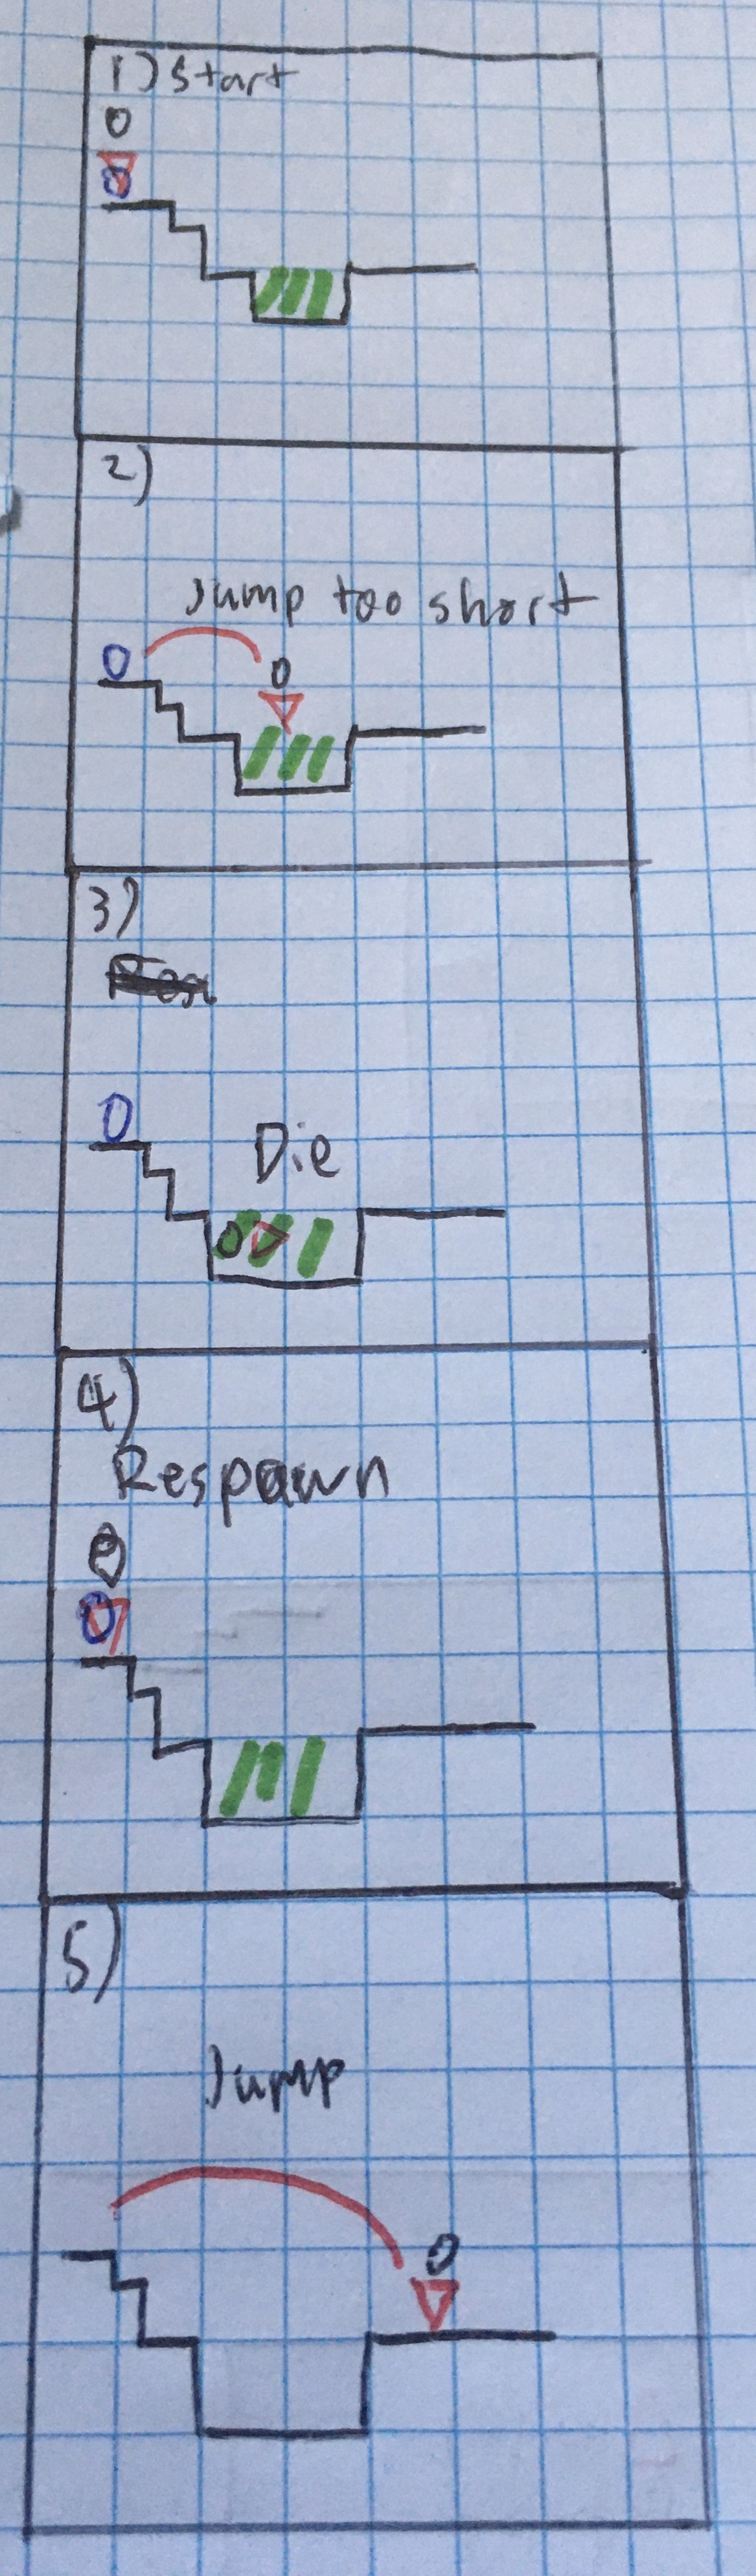 1) Start
2)
Jump too short
3)
Die
4)
Respawn
5)
Jump